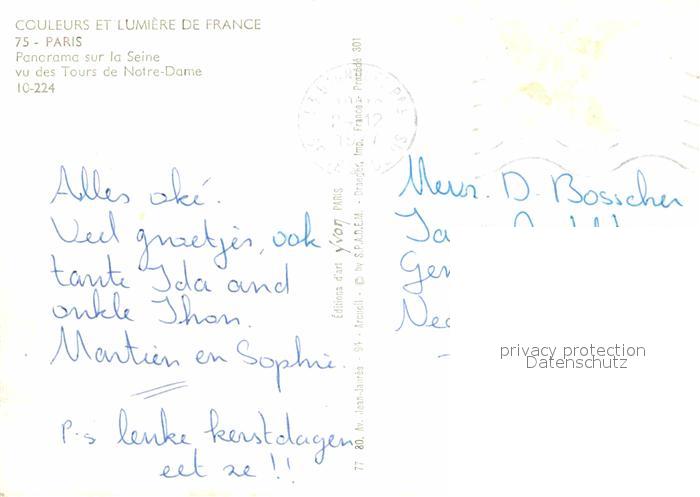 COULEURS ET LUMIÈRE DE FRANCE
75 - PARIS
Panorama sur la Seine
vu des Tours de Notre-Dame
10-224
Alles oké.
Veel groetjes, ook
tante Ida and
onkle Thon.
Martien en Sophie.
P.s leuke kerstdagen
eet ze!!
Editions d'art yvon PARIS
77 80, Av. Jean-Jaurès - 94 - Arcueil - © by S.P.A.D.E.M. - Draeger, Imp. France - Procédé 301
D. Bosscher
privacy protection
Datenschutz